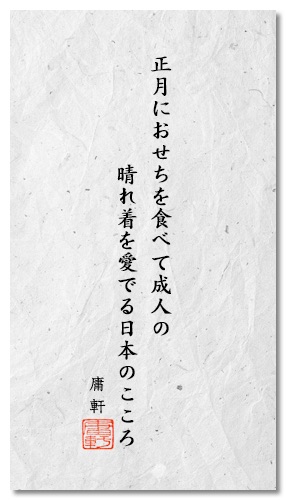 正月におせちを食べて成人の
晴れ着を愛でる日本のこころ
庸軒
庸軒